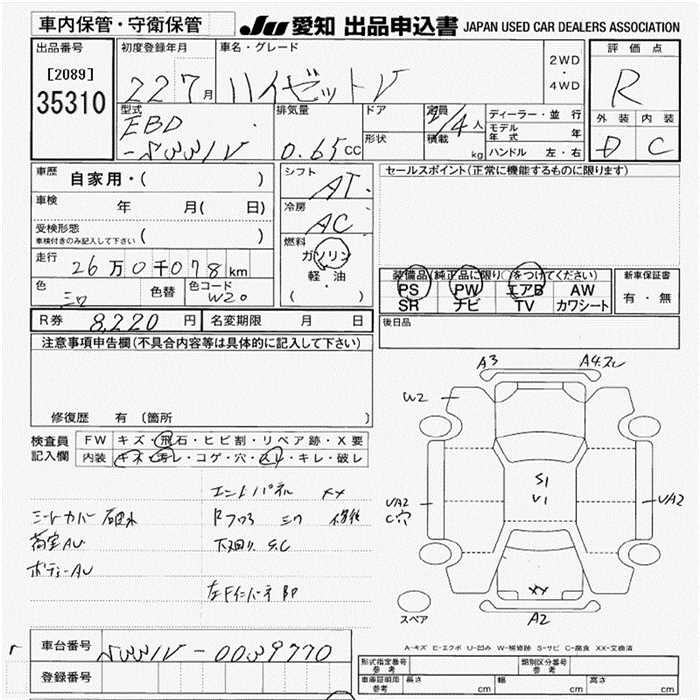 車内保管・守衛保管 JU 愛知 出品申込書 JAPAN USED CAR DEALERS ASSOCIATION
出品番号 初度登録年月 車名・グレード 評価点
[2089] 22 7月 ハイゼットV 2WD・4WD R
35310
型式 排気量 ドア 定員 ディーラー・並行 外装 内装
EBD 0.65CC 形状 /4人 モデル年式 年 D C
-S331V 積載 kg ハンドル 左・右
車歴 自家用・( ) シフト AT セールスポイント(正常に機能するものに限ります)
車検 年 月( 日) 冷房 AC
受検形態 ( ) 燃料
車検付きのみ記入して下さい ガソリン
走行 26万0千078km 軽・油 装備品(純正品に限り○をつけてください) 新車保証書
色 シロ 色替 色コード W20 ( ) PS PW エアB AW 有・無
SR ナビ TV カワシート
R券 8,220円 名変期限 月 日 後日品
注意事項申告欄(不具合内容等は具体的に記入して下さい)
A3 A4.スレ
W2
修復歴 有〔箇所 〕
検査員 FW キズ・飛石・ヒビ割・リペア跡・X要
記入欄 内装 キズ・汚レ・コゲ・穴・スレ・キレ・破レ
S1
V1
エンドパネル XX UA2 UA2
シートカバー Rフロア C穴
荷室AU 下廻り S.C
ボディーAU
XX
スペア A2
A-キズ E-エクボ U-凹み W-補修跡 S-サビ C-腐食 XX-交換済
車台番号 S331V-0039770
登録番号
形式指定番号 参考 類別区分番号 参考
車庫証明用 参考 長さ cm 幅 cm 高さ cm